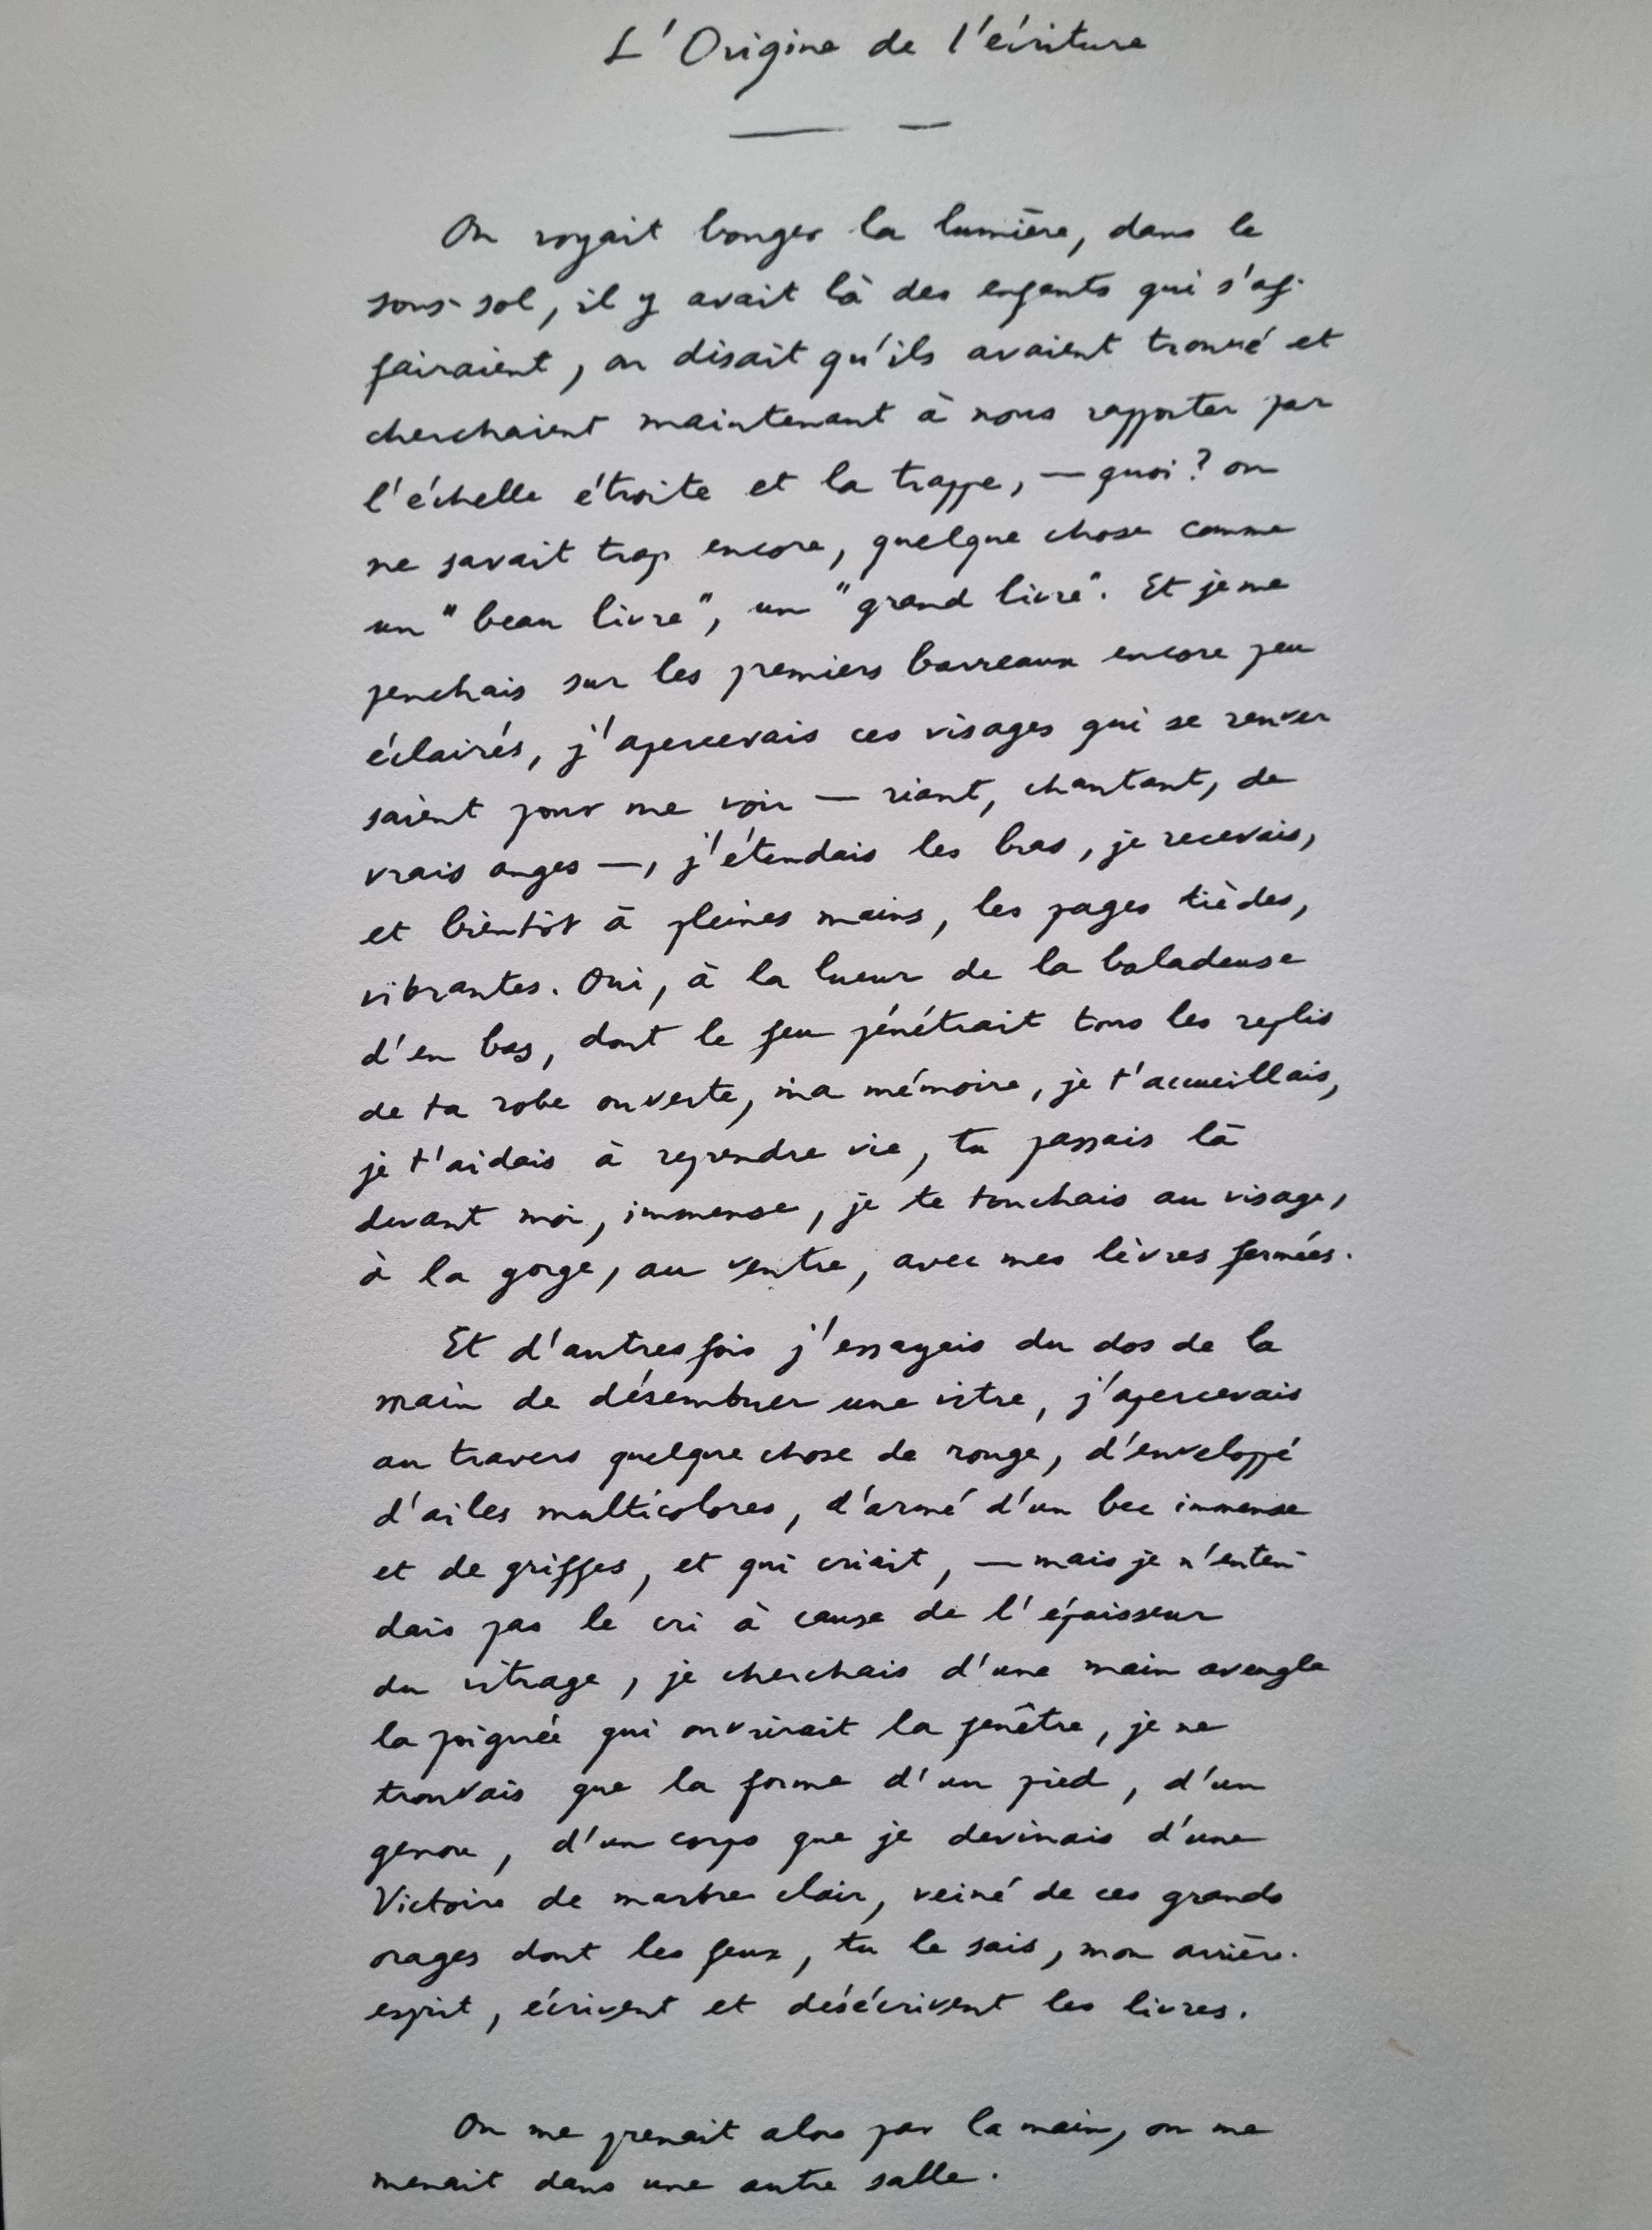 L'Origine de l'écriture
On voyait bouger la lumière, dans le
sous-sol, il y avait là des enfants qui s'af-
fairaient, on disait qu'ils avaient trouvé et
cherchaient maintenant à nous rapporter par
l'échelle étroite et la trappe, — quoi ? on
ne savait trop encore, quelque chose comme
un "beau livre", un "grand livre". Et je me
penchais sur les premiers barreaux encore peu
éclairés, j'apercevais ces visages qui se renver
saient pour me voir — riant, chantant, de
vrais anges —, j'étendais les bras, je recevais,
et bientôt à pleines mains, les pages tièdes,
vibrantes. Oui, à la lueur de la baladeuse
d'en bas, dont le feu pénétrait tous les replis
de ta robe ouverte, ma mémoire, je t'accueillais,
je t'aidais à reprendre vie, tu passais là
devant moi, immense, je te touchais au visage,
à la gorge, au ventre, avec mes lèvres fermées.
Et d'autres fois j'essayais du dos de la
main de désembuer une vitre, j'apercevais
au travers quelque chose de rouge, d'enveloppé
d'ailes multicolores, d'armé d'un bec immense
et de griffes, et qui criait, — mais je n'enten-
dais pas le cri à cause de l'épaisseur
du vitrage, je cherchais d'une main aveugle
la poignée qui ouvrirait la fenêtre, je ne
trouvais que la forme d'un pied, d'un
genou, d'un corps que je devinais d'une
Victoire de marbre clair, veiné de ces grands
orages dont les feux, tu le sais, mon arrière-
esprit, écrivent et désécrivent les livres.
On me prenait alors par la main, on me
menait dans une autre salle.